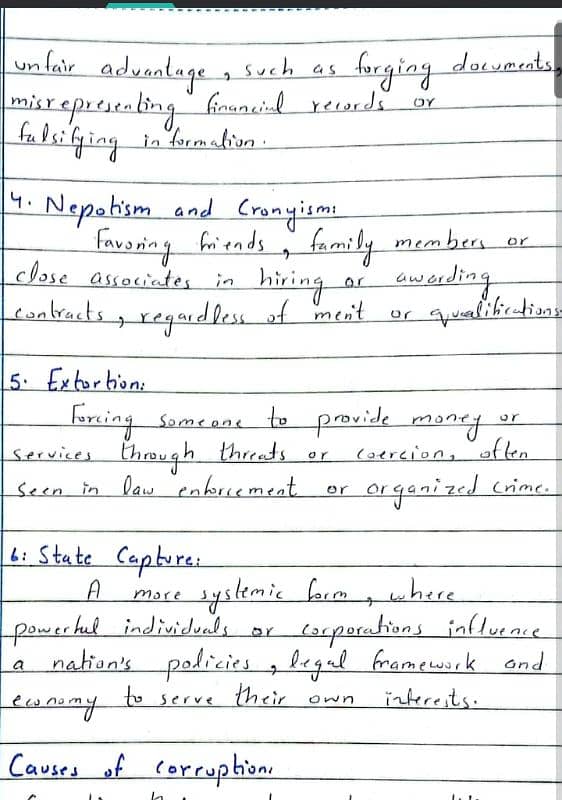 unfair advantage, such as forging documents,
misrepresenting financial records or
falsifying information.
4. Nepotism and Cronyism:
Favoring friends, family members or
close associates in hiring or awarding
contracts, regardless of merit or qualifications.
5. Extortion:
Forcing someone to provide money or
services through threats or coercion, often
seen in law enforcement or organized crime.
6: State Capture:
A more systemic form, where
powerful individuals or corporations influence
a nation's policies, legal framework and
economy to serve their own interests.
Causes of corruption: